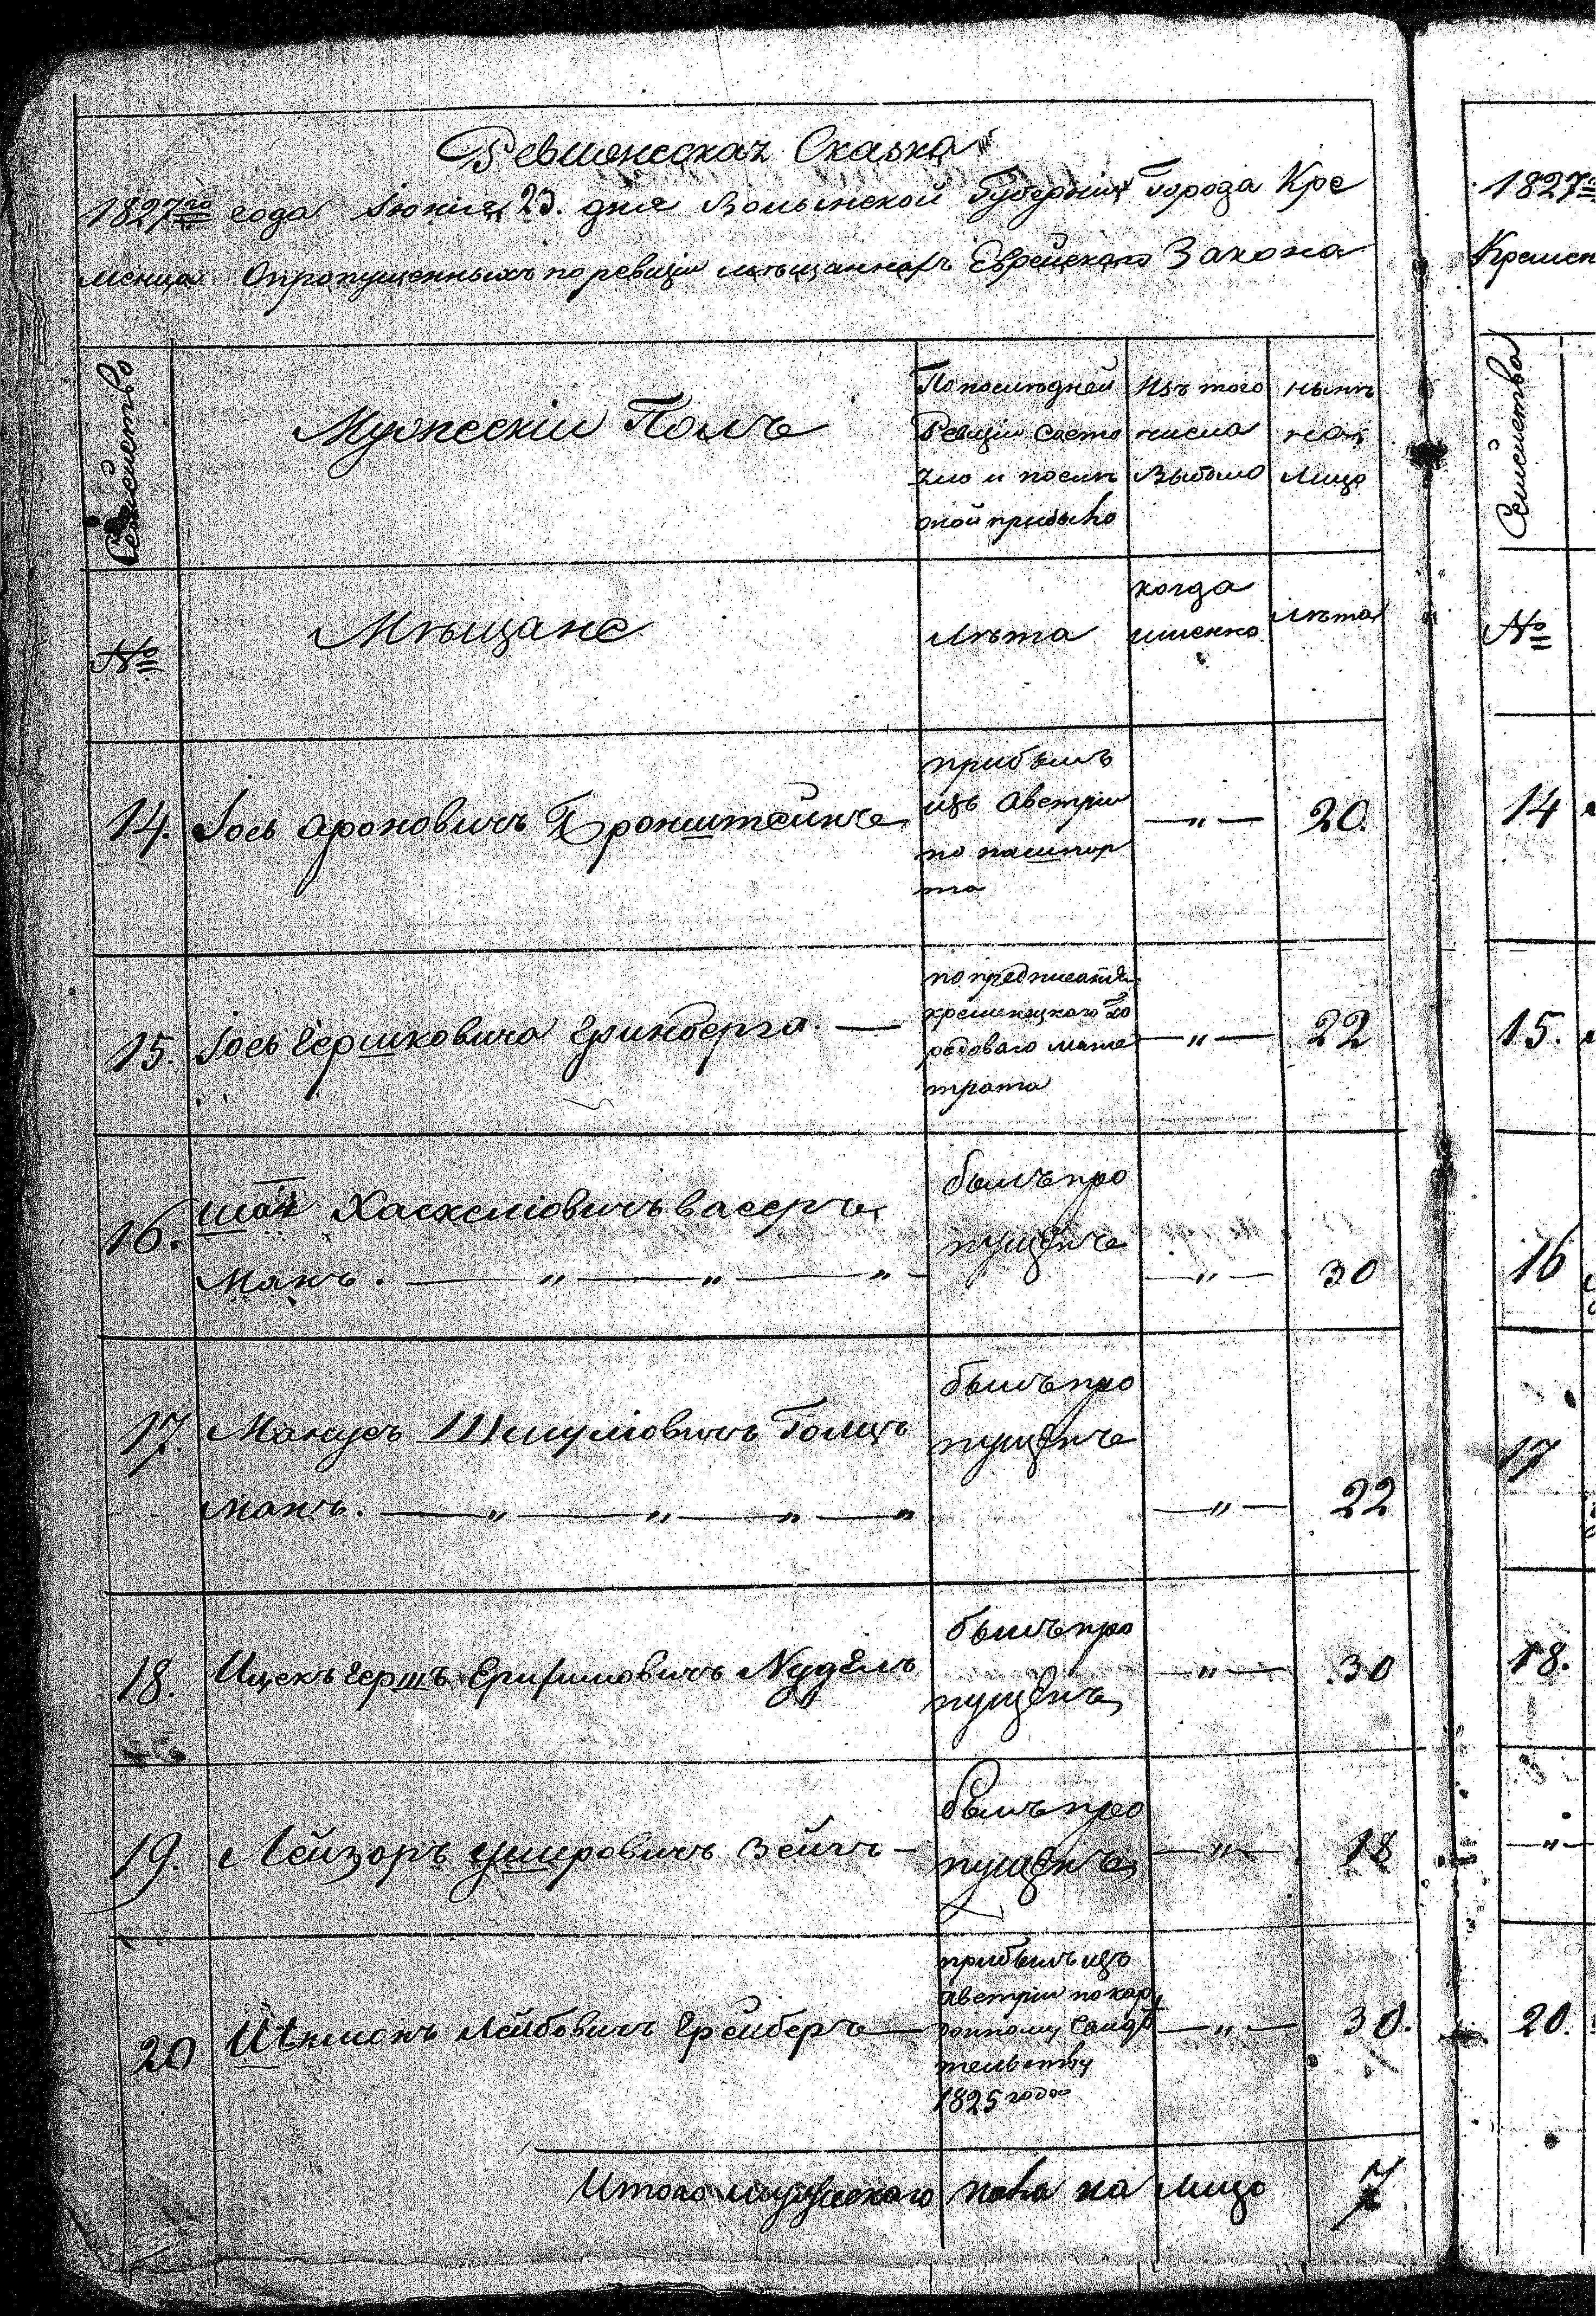 Ревизская Сказка
1827го года Июня 23. дня Волынской Губернии Города Кре
менца О пропущенныхъ по ревизіи мѣщанахъ Еврейскаго Закона
Семейство
Мужескій Полъ
По последней
Ревизіи состо
яло и после
оной прибыло
Изъ того
числа
Выбыло
нынѣ
на
лицо
№
Мѣщане
лѣта
когда
именно
лѣта
14. Іось Ароновичъ Бронштейнъ
прибылъ
изъ Австріи
по пашпор
та
— „ —
20.
15. Іось Гершковичъ Гринберг —
по предписанію
кременецкаго го
родоваго маги
трата
— „ —
22
16. Хаскеліовичъ васеръ
Манъ. — „ — „ — „ —
былъ про
пущенъ
— „ —
30
17. Манусъ Шмуліовичъ Голцъ
Манъ. — „ — „ — „ — „
былъ про
пущенъ
— „ —
22
18. Ицекъ Гершъ Нудель
былъ про
пущенъ
— „ —
30
19. Лейзоръ Ушеровичъ Зейгъ —
былъ про
пущенъ
— „ —
18
20 Лейбовичъ Грейберъ —
прибылъ изъ
Австріи по
свидѣ
тельству
1825 года
— „ —
30.
Итого мужескаго пола на лицо 7
1827
Кремен
Семейства
№
14
15.
16
17
18.
— „ —
20.